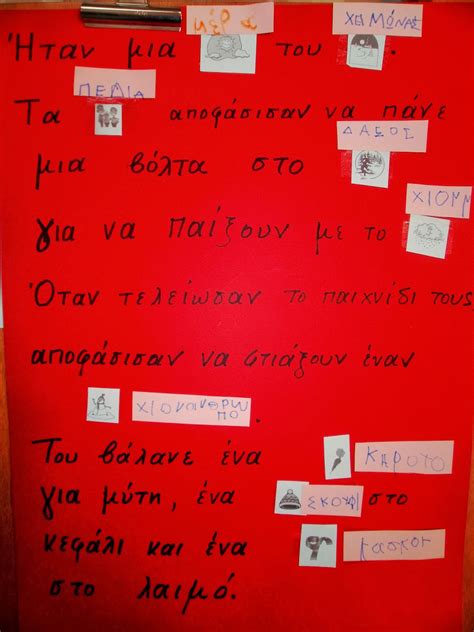 ΧΕΙΜΩΝΑΣ
Ήταν μια του .
ΠΕΔΙΑ
Τα αποφάσισαν να πάνε
ΔΑΣΟΣ
μια βόλτα στο
για να παίξουν με το
Όταν τελείωσαν το παιχνίδι τους
αποφάσισαν να φτιάξουν έναν
ΧΙΟΝΑΝΘΡΩ
ΠΟ .
Του βάλανε ένα ΚΑΡΟΤΟ
για μύτη, ένα ΣΚΟΥΦΙ στο
κεφάλι και ένα
στο λαιμό.